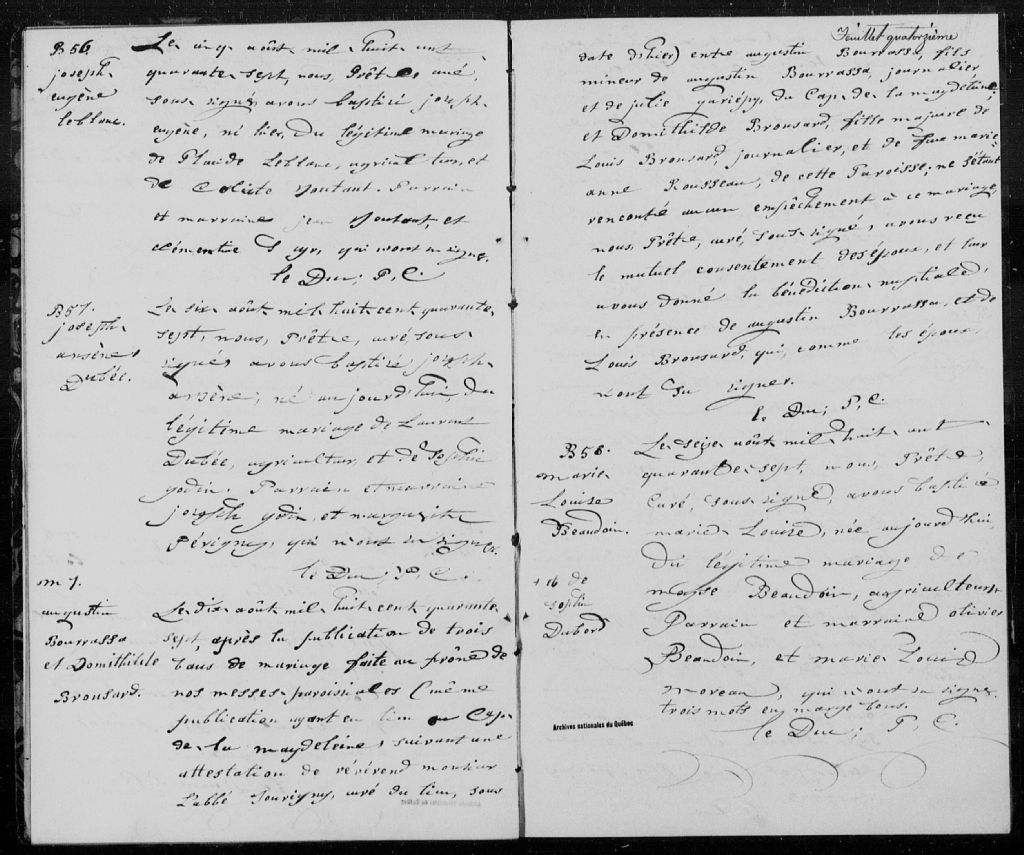 B 56.
joseph
eugène
leblanc.
Le cinq août mil huit cent
quarante sept, nous, Prêtre curé,
sous-signé, avons baptisé joseph
eugène, né hier, du légitime mariage
de Placide Leblanc, agriculteur, et
de Coleste Toutant. Parrain
et marraine jean Toutant, et
clémentine, qui n'ont su signer.
le Duc, P. C.
B 57.
joseph
arsène
Dubée.
Le six août mil huit cent quarante
sept, nous, Prêtre, curé, sous-
signé, avons baptisé joseph
arsène, né aujourd'hui, du
légitime mariage de Laurent
Dubée, agriculteur, et de Sophie
godin. Parrain et marraine
joseph godin, et marguerite
Périgny, qui n'ont su signer.
le Duc, P. C.
m 7.
augustin
Bourrassa
et Domithilde
Brousard.
Le dix août mil huit cent quarante
sept, après la publication de trois
bans de mariage faite au prône de
nos messes paroissiales (même
publication ayant eu lieu au Cap
de la magdeleine, suivant une
attestation de révérend monsieur
L'abbé Tourigny, curé du lieu, sous
Feuillet quatorzième
date d'hier) entre augustin Bourrassa, fils
mineur de augustin Bourrassa, journalier
et de julie gariépy, du Cap de la magdeleine,
et Domithilde Brousard, fille majeure de
Louis Brousard, journalier, et de feue marie
anne Rousseau, de cette Paroisse; ne s'étant
rencontré aucun empêchement à ce mariage,
nous, Prêtre, curé, sous-signé, avons reçu
le mutuel consentement des époux, et leur
avons donné la bénédiction nuptiale,
en présence de augustin Bourrassa, et de
Louis Brousard, qui, comme les époux,
n'ont su signer.
le Duc, P. C.
B 58.
marie
Louise
Beaudoin.
+ 16 de
Dubord
Le seize août mil huit cent
quarante sept, nous, Prêtre,
Curé, sous-signé, avons baptisé
marie Louise, née aujourd'hui
du légitime mariage de
moyse Beaudoin, agriculteur
Parrain et marraine olivier
Beaudoin, et marie Louise
moreau, qui n'ont su signer.
trois mots en marge bons.
le Duc, P. C.
Archives nationales du Québec